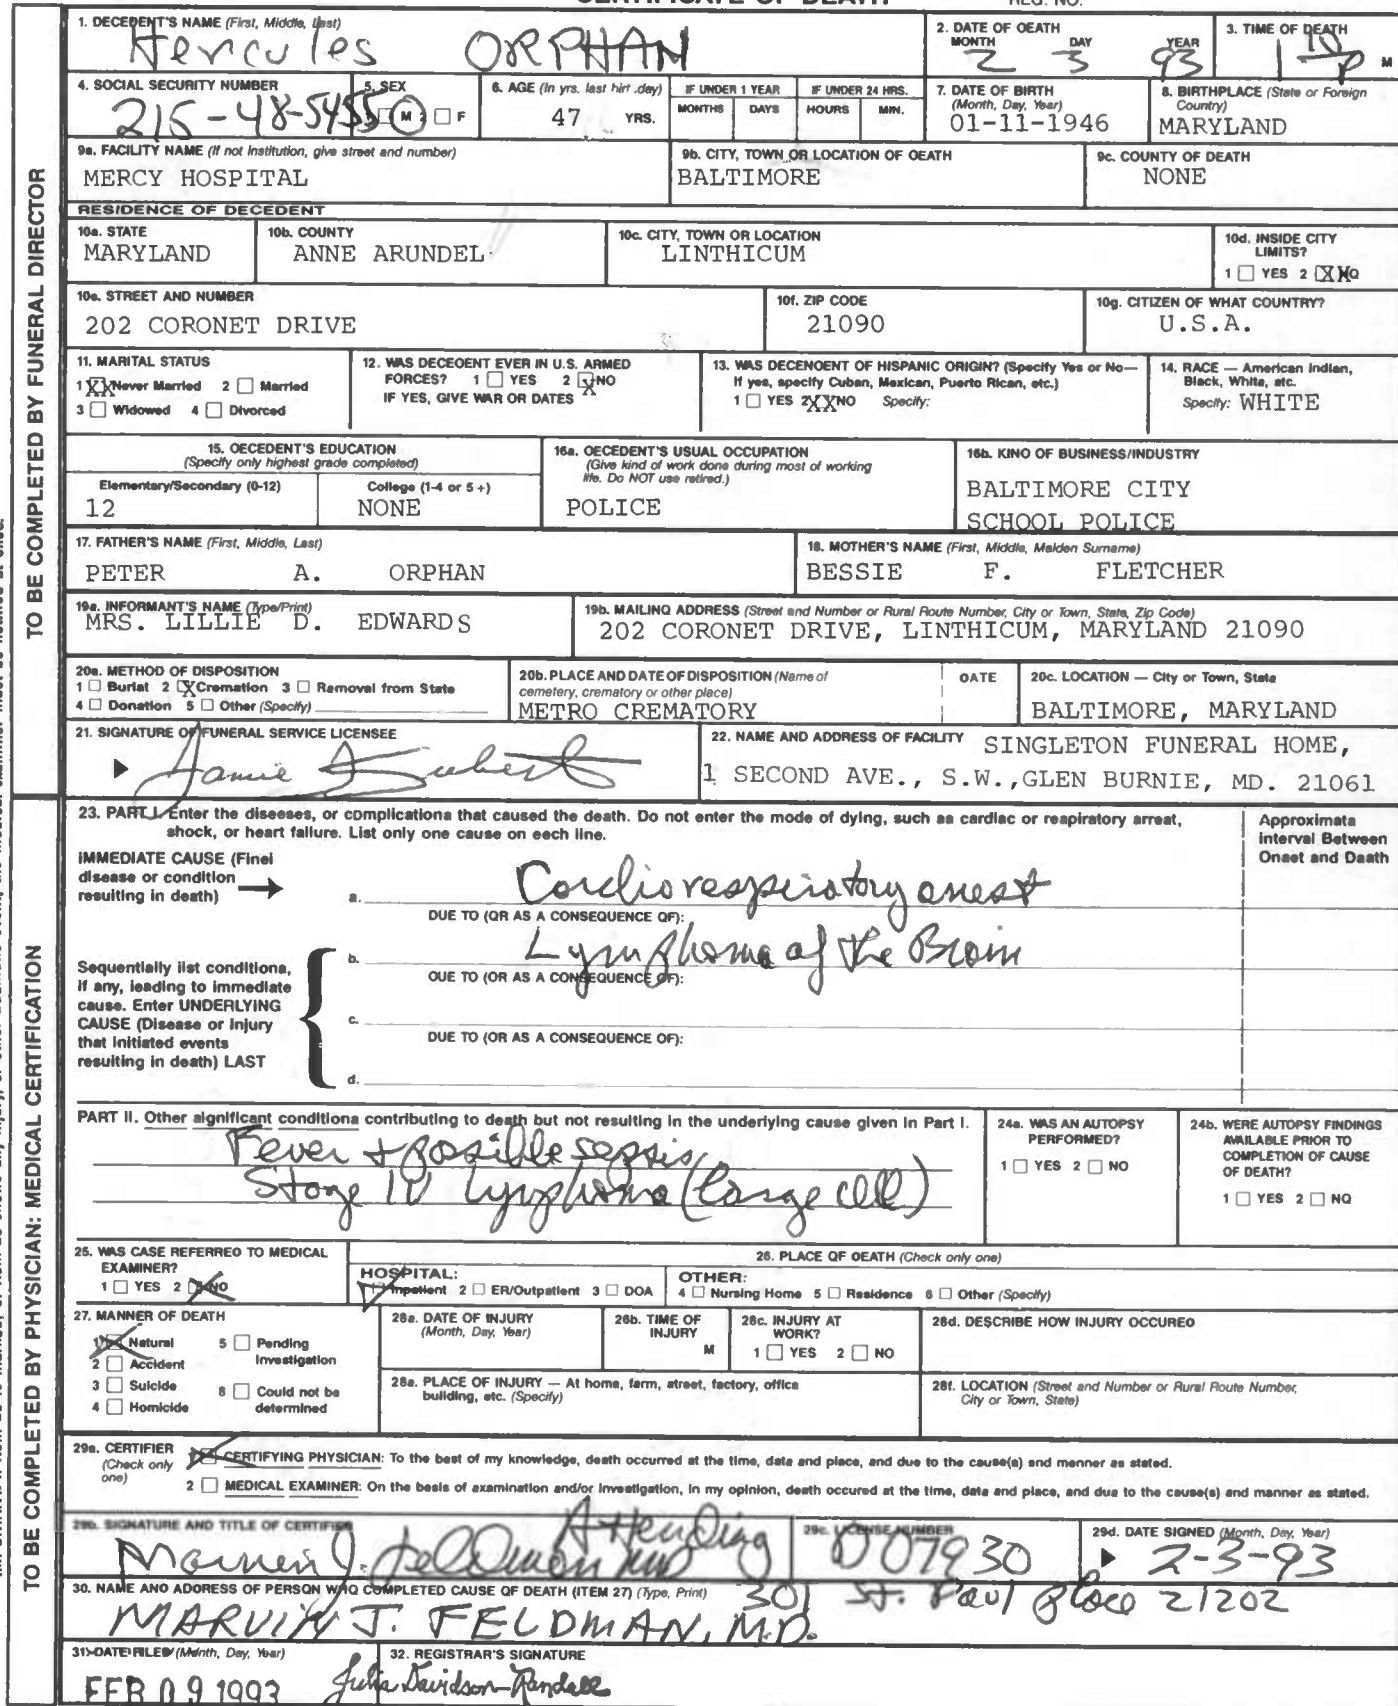 CERTIFICATE OF DEATH REG. NO.
TO BE COMPLETED BY FUNERAL DIRECTOR
1. DECEDENT'S NAME (First, Middle, Last)
Hercules ORPHAN
2. DATE OF DEATH
MONTH DAY YEAR
2 3 93
3. TIME OF DEATH
1 10 P M
4. SOCIAL SECURITY NUMBER
215-48-5455
5. SEX
1 M 2 □ F
6. AGE (In yrs. last birthday)
47 YRS.
IF UNDER 1 YEAR
MONTHS DAYS
IF UNDER 24 HRS.
HOURS MIN.
7. DATE OF BIRTH
(Month, Day, Year)
01-11-1946
8. BIRTHPLACE (State or Foreign
Country)
MARYLAND
9a. FACILITY NAME (If not institution, give street and number)
MERCY HOSPITAL
9b. CITY, TOWN OR LOCATION OF DEATH
BALTIMORE
9c. COUNTY OF DEATH
NONE
RESIDENCE OF DECEDENT
10a. STATE
MARYLAND
10b. COUNTY
ANNE ARUNDEL
10c. CITY, TOWN OR LOCATION
LINTHICUM
10d. INSIDE CITY
LIMITS?
1 □ YES 2 X NO
10e. STREET AND NUMBER
202 CORONET DRIVE
10f. ZIP CODE
21090
10g. CITIZEN OF WHAT COUNTRY?
U.S.A.
11. MARITAL STATUS
1 XX Never Married 2 □ Married
3 □ Widowed 4 □ Divorced
12. WAS DECEDENT EVER IN U.S. ARMED
FORCES? 1 □ YES 2 X NO
IF YES, GIVE WAR OR DATES
13. WAS DECENDENT OF HISPANIC ORIGIN? (Specify Yes or No—
If yes, specify Cuban, Mexican, Puerto Rican, etc.)
1 □ YES 2 XX NO Specify:
14. RACE — American Indian,
Black, White, etc.
Specify: WHITE
15. DECEDENT'S EDUCATION
(Specify only highest grade completed)
Elementary/Secondary (0-12)
12
College (1-4 or 5+)
NONE
16a. DECEDENT'S USUAL OCCUPATION
(Give kind of work done during most of working
life. Do NOT use retired.)
POLICE
16b. KIND OF BUSINESS/INDUSTRY
BALTIMORE CITY
SCHOOL POLICE
17. FATHER'S NAME (First, Middle, Last)
PETER A. ORPHAN
18. MOTHER'S NAME (First, Middle, Maiden Surname)
BESSIE F. FLETCHER
19a. INFORMANT'S NAME (Type/Print)
MRS. LILLIE D. EDWARDS
19b. MAILING ADDRESS (Street and Number or Rural Route Number, City or Town, State, Zip Code)
202 CORONET DRIVE, LINTHICUM, MARYLAND 21090
20a. METHOD OF DISPOSITION
1 □ Burial 2 X Cremation 3 □ Removal from State
4 □ Donation 5 □ Other (Specify)
20b. PLACE AND DATE OF DISPOSITION (Name of
cemetery, crematory or other place)
METRO CREMATORY
DATE
20c. LOCATION — City or Town, State
BALTIMORE, MARYLAND
21. SIGNATURE OF FUNERAL SERVICE LICENSEE
22. NAME AND ADDRESS OF FACILITY SINGLETON FUNERAL HOME,
1 SECOND AVE., S.W.,GLEN BURNIE, MD. 21061
TO BE COMPLETED BY PHYSICIAN: MEDICAL CERTIFICATION
23. PART I. Enter the diseases, or complications that caused the death. Do not enter the mode of dying, such as cardiac or respiratory arrest,
shock, or heart failure. List only one cause on each line.
Approximate
Interval Between
Onset and Death
IMMEDIATE CAUSE (Final
disease or condition
resulting in death)
a. Cardiorespiratory arrest
DUE TO (OR AS A CONSEQUENCE OF):
Sequentially list conditions,
if any, leading to immediate
cause. Enter UNDERLYING
CAUSE (Disease or injury
that initiated events
resulting in death) LAST
b. Lymphoma of the Brain
DUE TO (OR AS A CONSEQUENCE OF):
c.
DUE TO (OR AS A CONSEQUENCE OF):
d.
PART II. Other significant conditions contributing to death but not resulting in the underlying cause given in Part I.
Fever + possible sepsis
Stage IV Lymphoma (large cell)
24a. WAS AN AUTOPSY
PERFORMED?
1 □ YES 2 □ NO
24b. WERE AUTOPSY FINDINGS
AVAILABLE PRIOR TO
COMPLETION OF CAUSE
OF DEATH?
1 □ YES 2 □ NO
25. WAS CASE REFERRED TO MEDICAL
EXAMINER?
1 □ YES 2 NO
26. PLACE OF DEATH (Check only one)
HOSPITAL:
Inpatient 2 □ ER/Outpatient 3 □ DOA
OTHER:
4 □ Nursing Home 5 □ Residence 6 □ Other (Specify)
27. MANNER OF DEATH
1 Natural 5 □ Pending
Investigation
2 □ Accident
3 □ Suicide 6 □ Could not be
determined
4 □ Homicide
28a. DATE OF INJURY
(Month, Day, Year)
28b. TIME OF
INJURY
M
28c. INJURY AT
WORK?
1 □ YES 2 □ NO
28d. DESCRIBE HOW INJURY OCCURED
28e. PLACE OF INJURY — At home, farm, street, factory, office
building, etc. (Specify)
28f. LOCATION (Street and Number or Rural Route Number,
City or Town, State)
29a. CERTIFIER
(Check only
one)
1 CERTIFYING PHYSICIAN: To the best of my knowledge, death occurred at the time, date and place, and due to the cause(s) and manner as stated.
2 □ MEDICAL EXAMINER: On the basis of examination and/or investigation, in my opinion, death occured at the time, date and place, and due to the cause(s) and manner as stated.
29b. SIGNATURE AND TITLE OF CERTIFIER
Marvin J. Feldman MD Attending
29c. LICENSE NUMBER
D07930
29d. DATE SIGNED (Month, Day, Year)
2-3-93
30. NAME AND ADDRESS OF PERSON WHO COMPLETED CAUSE OF DEATH (ITEM 27) (Type, Print)
301 St. Paul Place 21202
MARVIN J. FELDMAN, M.D.
31. DATE FILED (Month, Day, Year)
FEB 09 1993
32. REGISTRAR'S SIGNATURE
Julia Davidson-Randall